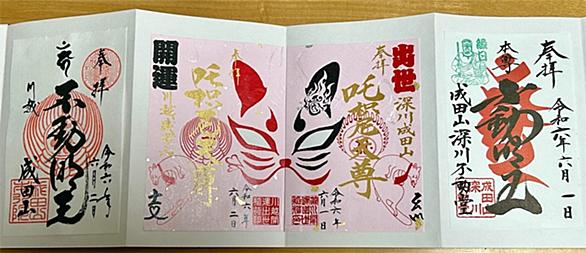 奉拝
令和六年六月一日
本尊
不動明王
成田山深川不動堂
縁日
出世
深川成田山
奉拝
吒枳尼天尊
令和六年
六月一日
奉拝
吒枳尼天尊
開運
令和六年
六月二日
奉拝
令和六年
六月二日
不動明王
成田山
川越